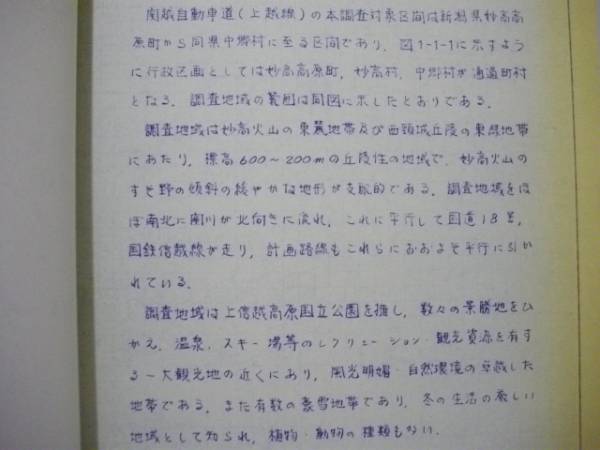 関越自動車道(上越線)の本調査対象区間は新潟県妙高高
原町から同県中郷村に至る区間であり、図1-1-1に示すよう
に行政区画としては妙高高原町、妙高村、中郷村が通過町村
となる。調査地域の範囲は同図に示したとおりである。
調査地域は妙高火山の東麓地帯及び西頚城丘陵の東縁地帯
にあたり、標高600~200mの丘陵性の地域で、妙高火山の
すそ野の傾斜の緩やかな地形が支配的である。調査地域をほ
ぼ南北に関川が北向きに流れ、これに平行して国道18号、
国鉄信越線が走り、計画路線もこれらにおおよそ平行に引か
れている。
調査地域は上信越高原国立公園を擁し、数々の景勝地をひ
かえ、温泉、スキー場等のレクリェーション・観光資源を有す
る一大観光地の近くにあり、風光明媚・自然環境の卓越した
地帯である。また有数の豪雪地帯であり、冬の生活の厳しい
地域として知られ、植物・動物の種類も